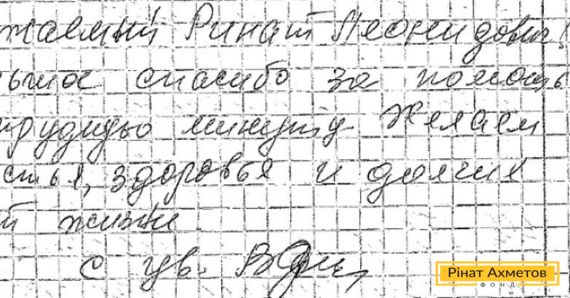 жаемый Ринат Леонидович!
ьшое спасибо за помощь
трудную минуту. Желаем
стья, здоровья и долгих
й жизни.
с ув.
Рінат Ахметов
ФОНД